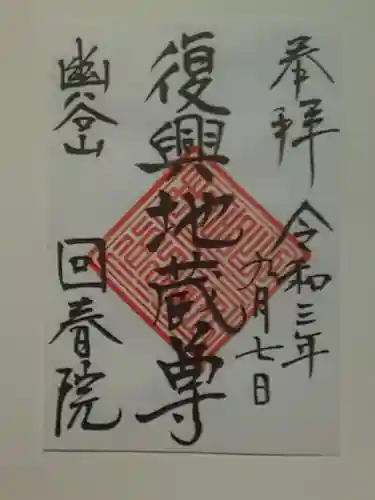 奉拝
令和三年
九月七日
復興地蔵尊
幽谷山
回春院